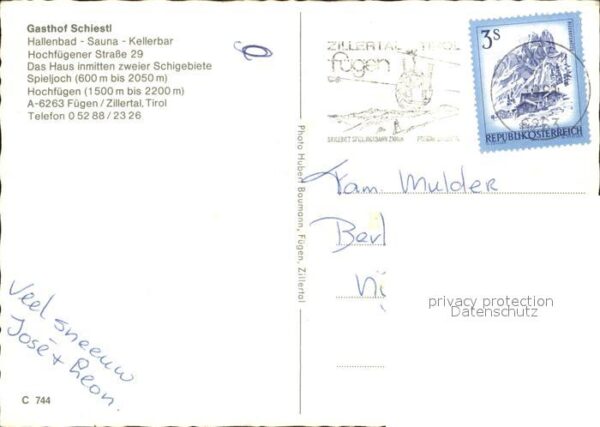 Gasthof Schiestl
Hallenbad - Sauna - Kellerbar
Hochfügener Straße 29
Das Haus inmitten zweier Schigebiete
Spieljoch (600 m bis 2050 m)
Hochfügen (1500 m bis 2200 m)
A-6263 Fügen / Zillertal, Tirol
Telefon 0 52 88 / 23 26
Veel sneeuw
José + Leon.
C 744
Photo Huber Baumann, Fügen, Zillertal
ZILLERTAL TIROL
fügen
3 S
REPUBLIK ÖSTERREICH
Fam. Mulder
privacy protection
Datenschutz